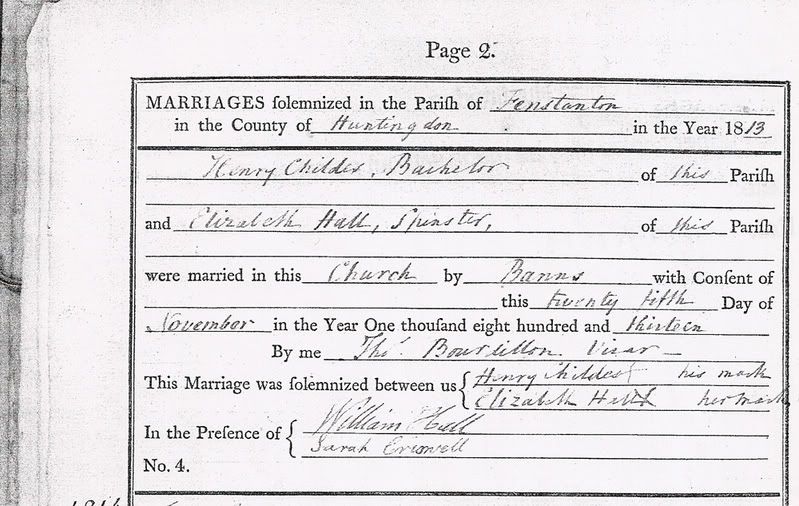 Page 2.
MARRIAGES ſolemnized in the Pariſh of Fenstanton
in the County of Huntingdon in the Year 1813
Henry Childes, Bachelor of this Pariſh
and Elizabeth Hall, Spinster, of this Pariſh
were married in this Church by Banns with Conſent of
this twenty fifth Day of
November in the Year One thouſand eight hundred and thirteen
By me Thos. Bourdillon Vicar
This Marriage was ſolemnized between us { Henry Childes his mark
Elizabeth Hall her mark
In the Preſence of { William Hall
Sarah
No. 4.